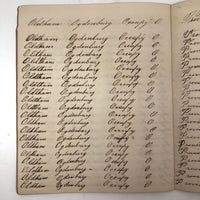 Oldham Ogdensburg Occupy O
Oldham Ogdensburg Occupy O
Oldham Ogdensburg Occupy O
Oldham Ogdensburg Occupy O
Oldham Ogdensburg Occupy O
Oldham Ogdensburg Occupy O
Oldham Ogdensburg Occupy O
Oldham Ogdensburg Occupy O
Oldham Ogdensburg Occupy O
Oldham Ogdensburg Occupy O
Oldham Ogdensburg Occupy O
Oldham Ogdensburg Occupy O
Oldham Ogdensburg Occupy O
Oldham Ogdensburg Occupy O
Oldham Ogdensburg Occupy O
Oldham Ogdensburg Occupy O
Oldham Ogdensburg Occupy O
Oldham Ogdensburg Occupy O